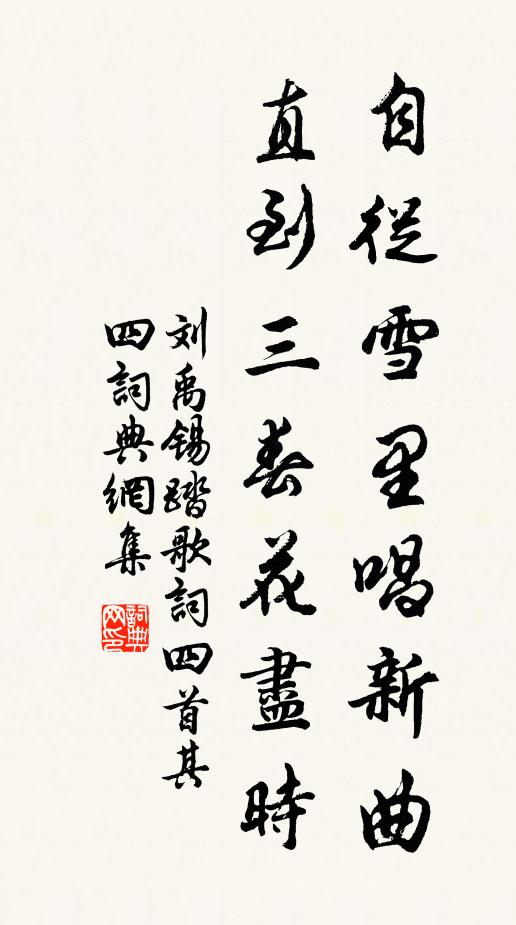 自從雪里唱新曲
直到三春花盡時
刘禹锡踏歌詞四首其
四詞典網集
詞典网印